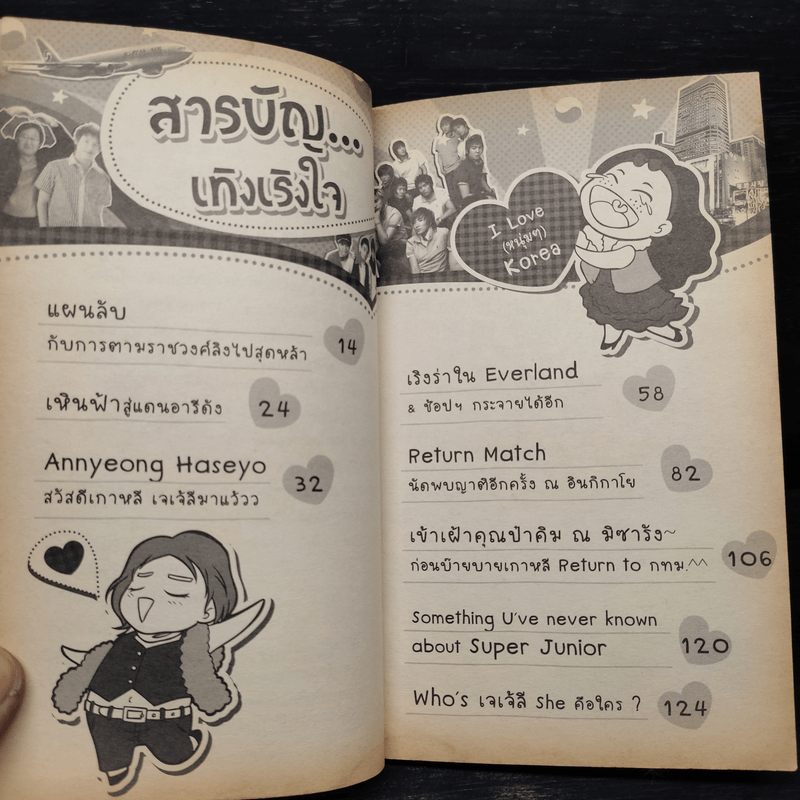 สารบัญ...
เทิงเริงใจ
แผนลับ
กับการตามราชวงศ์ลิงไปสุดหล้า
14
เหินฟ้าสู่แดนอารีดัง
24
Annyeong Haseyo
สวัสดีเกาหลี เจเจ้ลีมาแว้วว
32
I Love
(หนุ่มๆ)
Korea
เริงร่าใน Everland
& ช้อปฯ กระจายได้อีก
58
Return Match
นัดพบญาติอีกครั้ง ณ อินกิกาโย
82
เข้าเฝ้าคุณป๋าคิม ณ มิซารัง~
ก่อนบ๊ายบายเกาหลี Return to กทม.^^
106
Something U've never known
about Super Junior
120
Who's เจเจ้ลี She คือใคร ?
124